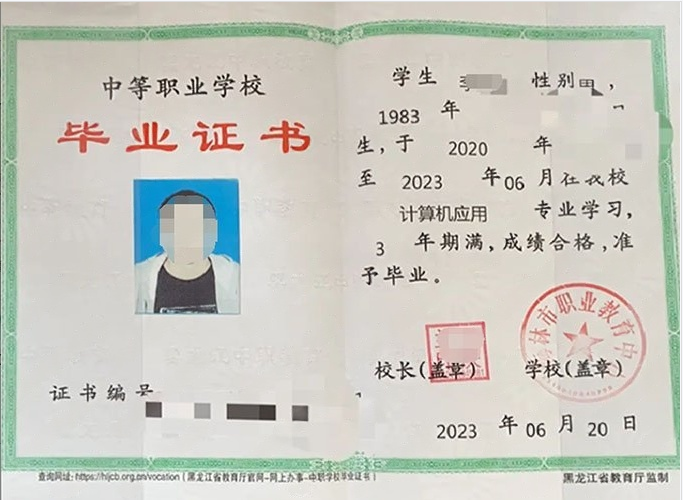 中等职业学校
毕业证书
证书编号
学生 李 性别男，
1983 年
生，于 2020 年
至 2023 年 06 月在我校
计算机应用 专业学习，
3 年期满，成绩合格，准
予毕业。
校长（盖章） 学校（盖章）
林市职业教育中
2023 年 06 月 20 日
查询网址：https://hljcb.org.cn/vocation（黑龙江省教育厅官网-网上办事-中职学校毕业证书）
黑龙江省教育厅监制